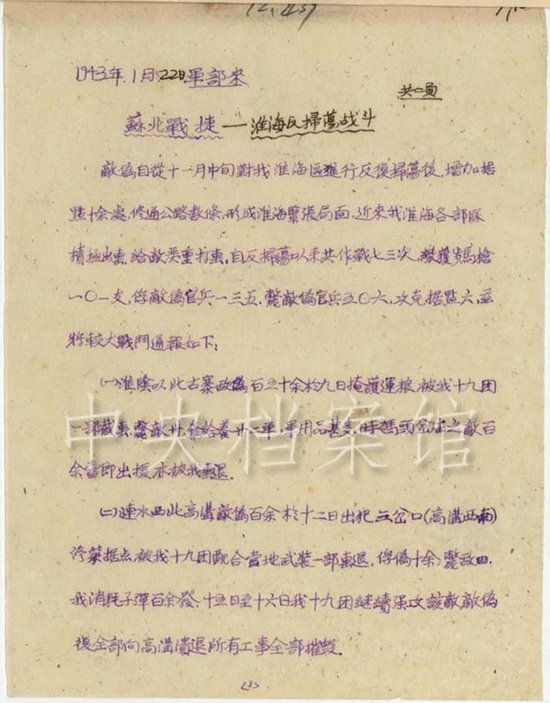 1943年1月22日軍部來
共一頁
蘇北戰捷——淮海反掃蕩战斗
敵偽自從十一月中旬對我淮海區進行反復掃蕩後,增加据
點十余處,修通公路数條,形成淮海緊張局面,近來我淮海各部隊
積極出击,給敵严重打击,自反掃蕩以來共作戰七三次,繳獲步馬槍
一〇一支,俘敵偽官兵一三五,斃敵偽官兵五〇六,攻克据點六,茲
將較大戰鬥通報如下:
(一)淮陰以北古寨敵偽百三十余於九日掩護運粮,被我十九团
一部截击,斃敵廿,夺給養廿二車,軍用品甚多,時碼頭之敵百
余當即出援,亦被我击退.
(二)漣水西北高溝敵偽百余於十二日出犯三岔口(高溝西南)
修築据点,被我十九团配合當地武裝一部击退,俘偽十余,斃敌四,
我消耗子彈百余發,十五日至十六日我十九团継續强攻該敵,敵偽
復全部向高溝潰退所有工事全部摧毀.
(1)
中央档案馆